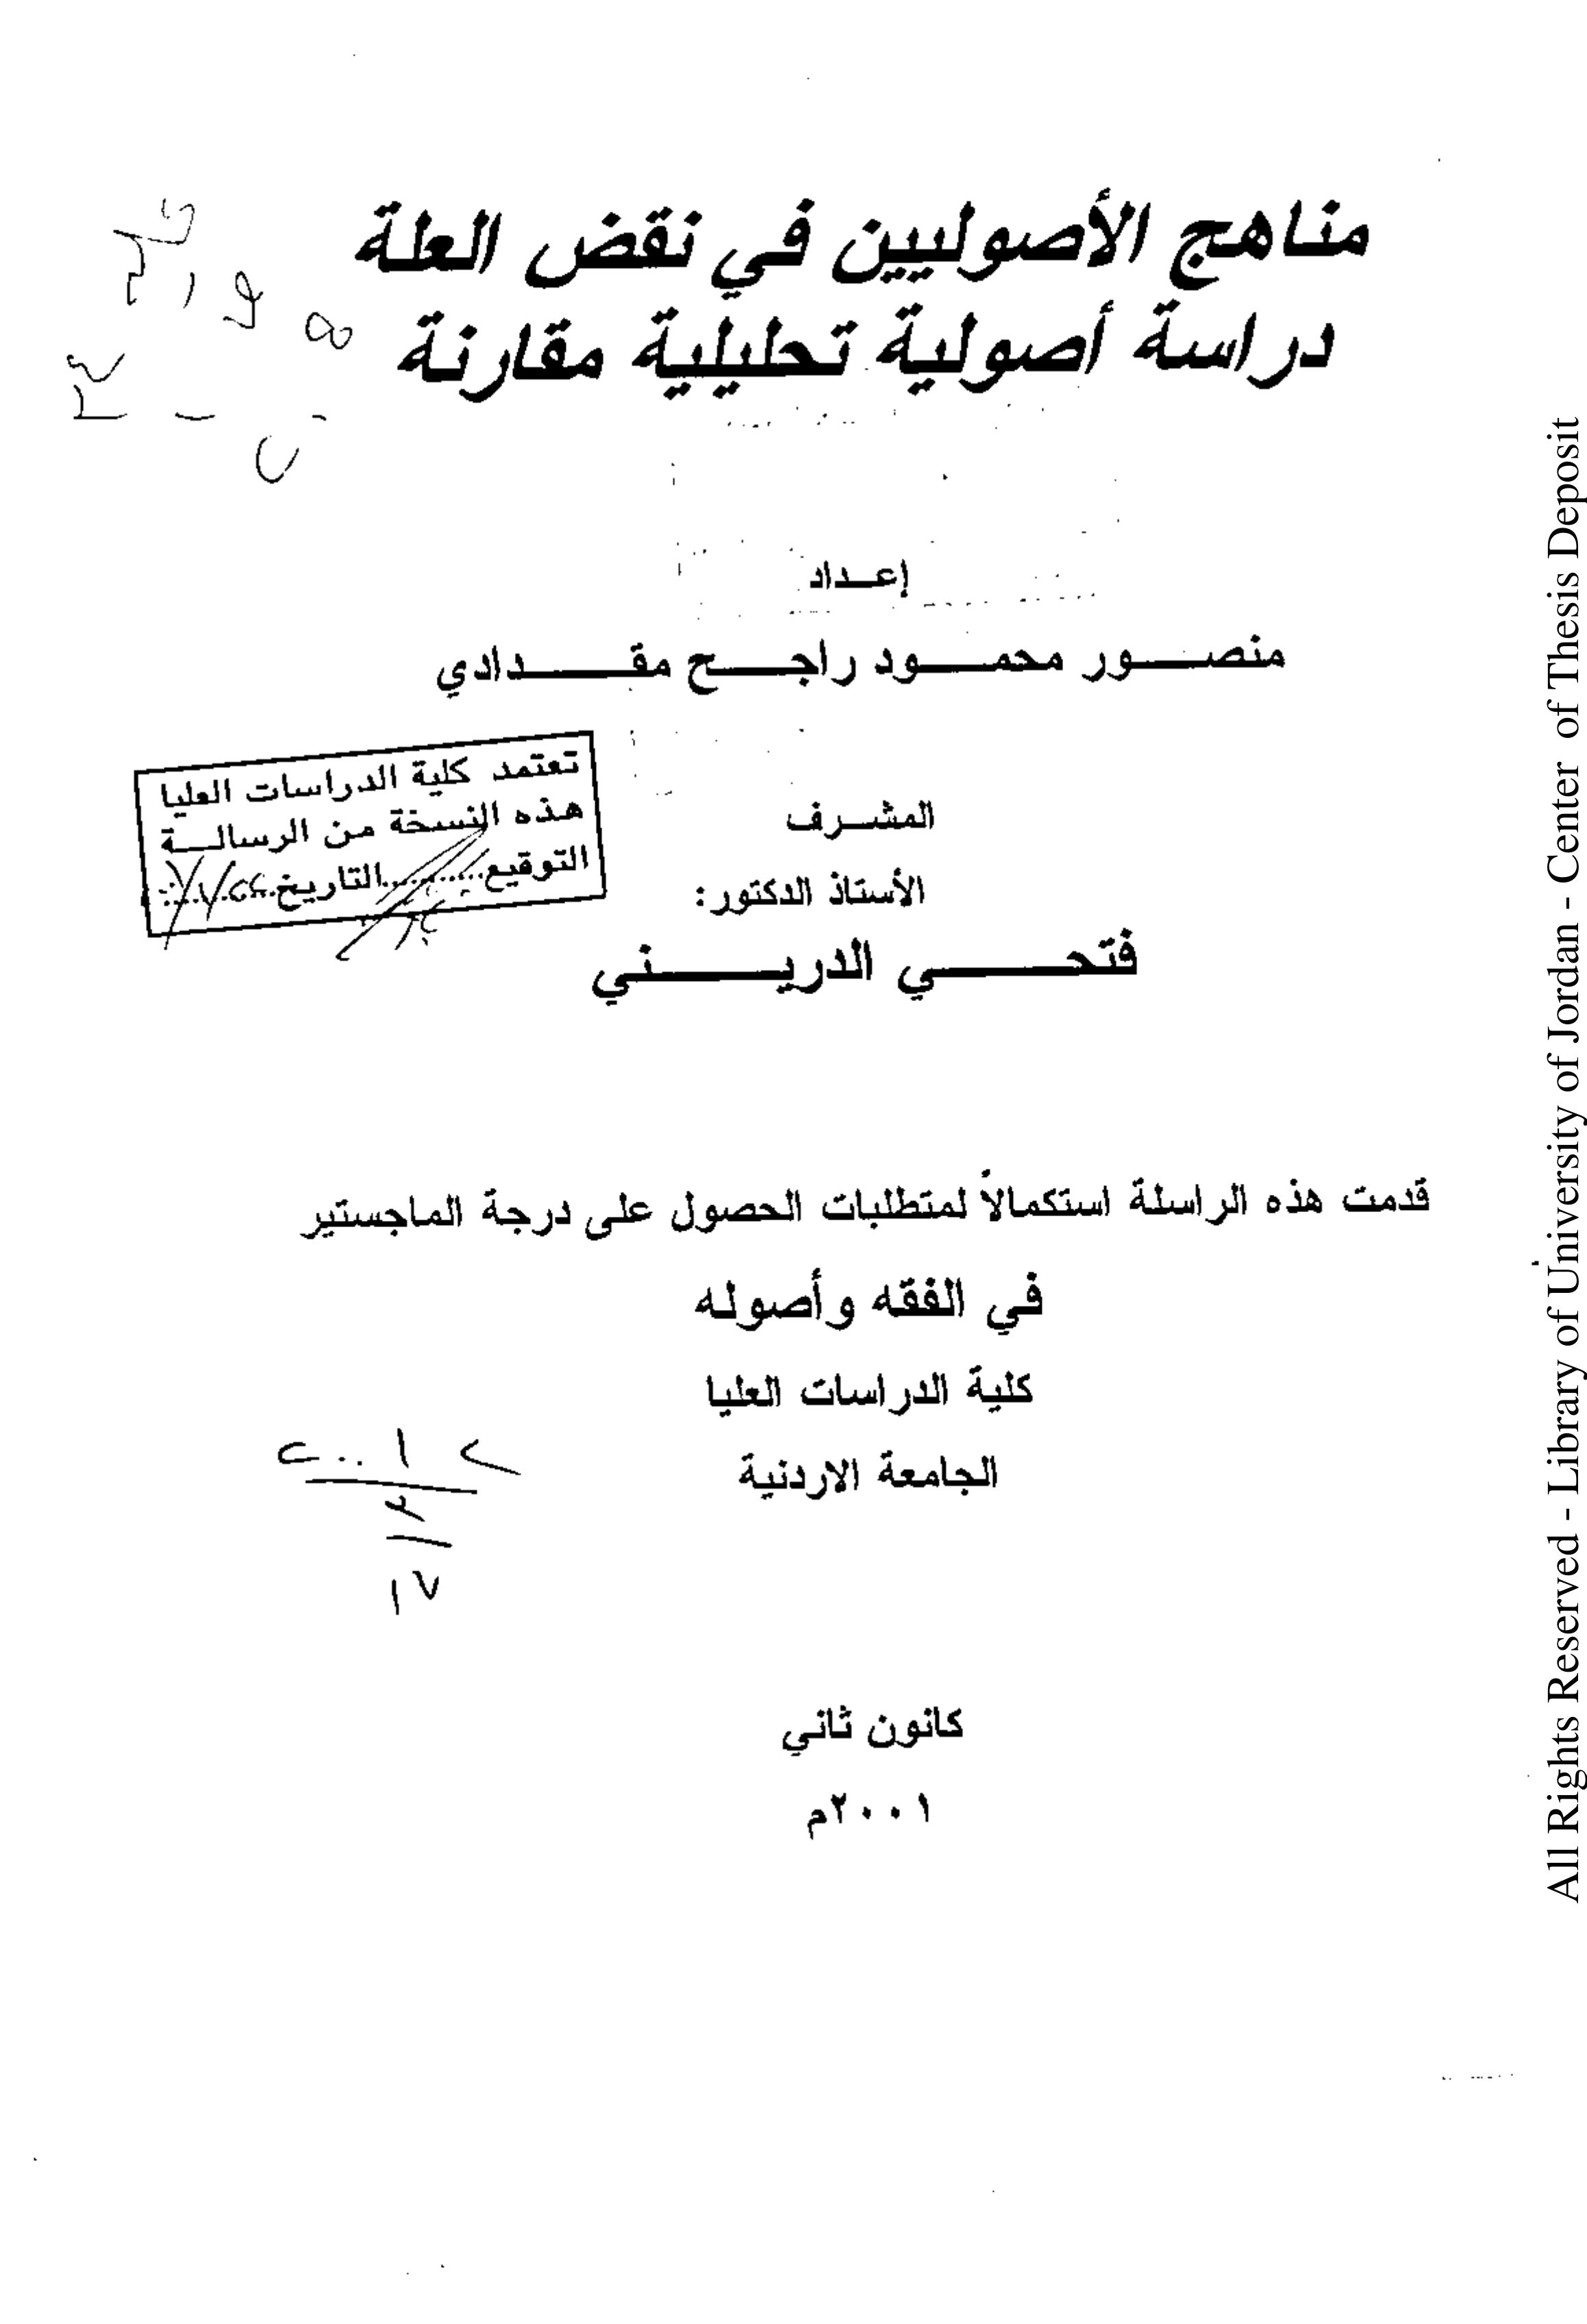 مناهج الأصوليين في نقض العلة
دراسة أصولية تحليلية مقارنة
إعداد
منصور محمود راجح مقدادي
تعتمد كلية الدراسات العليا
هذه النسخة من الرسالة
التوقيع..........التاريخ
المشرف
الأستاذ الدكتور:
فتحي الدريني
قدمت هذه الراسلة استكمالاً لمتطلبات الحصول على درجة الماجستير
في الفقه وأصوله
كلية الدراسات العليا
الجامعة الاردنية
١٧
كانون ثاني
٢٠٠١م
All Rights Reserved - Library of University of Jordan - Center of Thesis Deposit